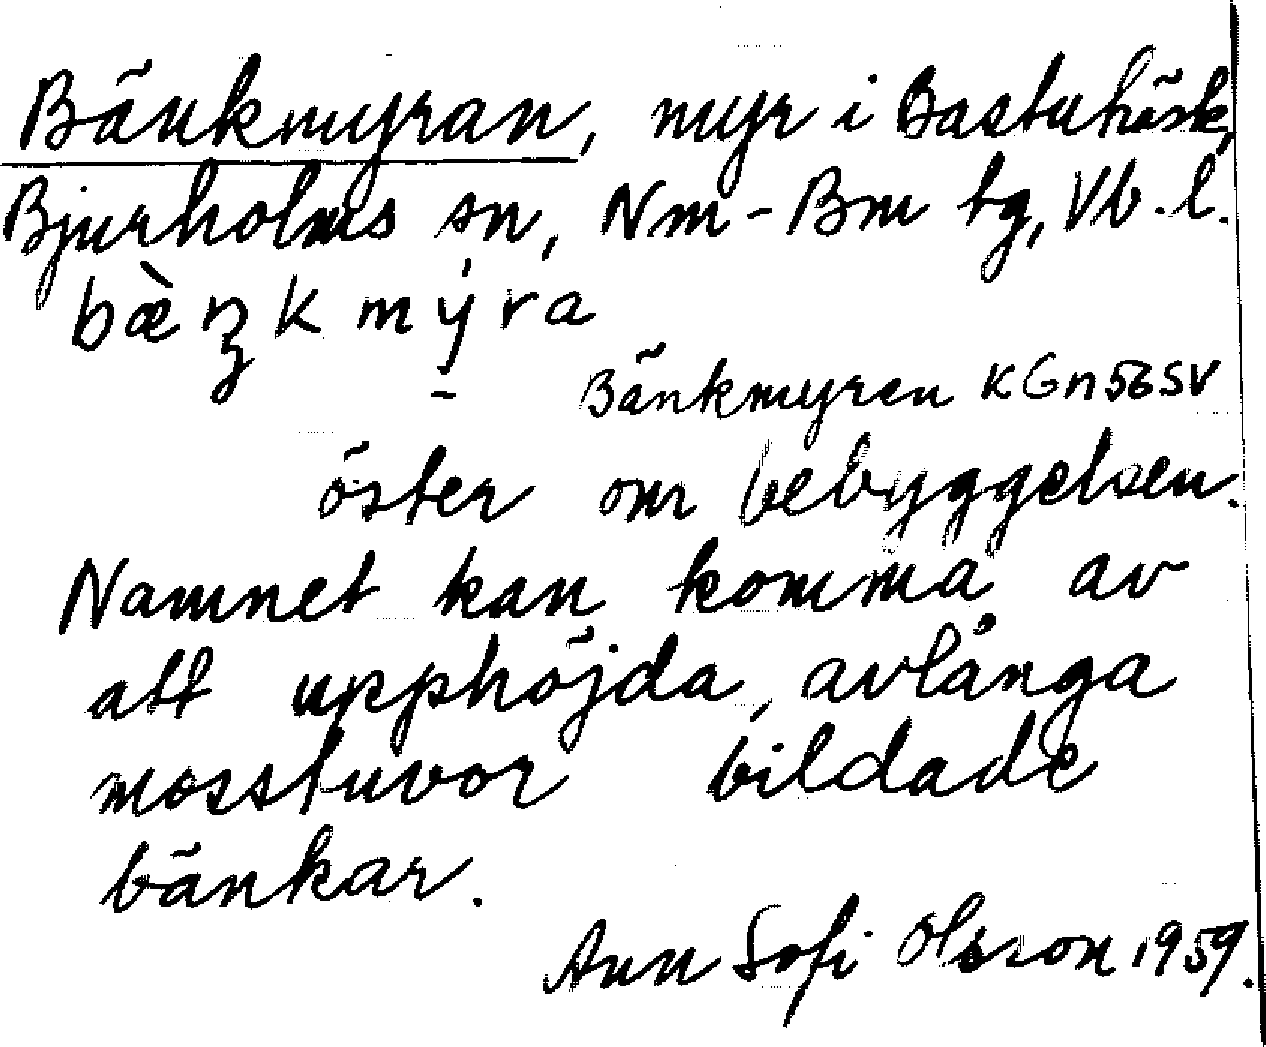 Bänkmyran, myr i Bastuträsk,
Bjurholms sn, Nm-Bm tg, Vb. l.
bæ̀n̠kmy̠̍ra
Bänkmyren KGn56SV
öster om bebyggelsen.
Namnet kan komma av
att upphöjda, avlånga
mosstuvor bildade
bänkar.
Ann Sofi Olsson 1959.